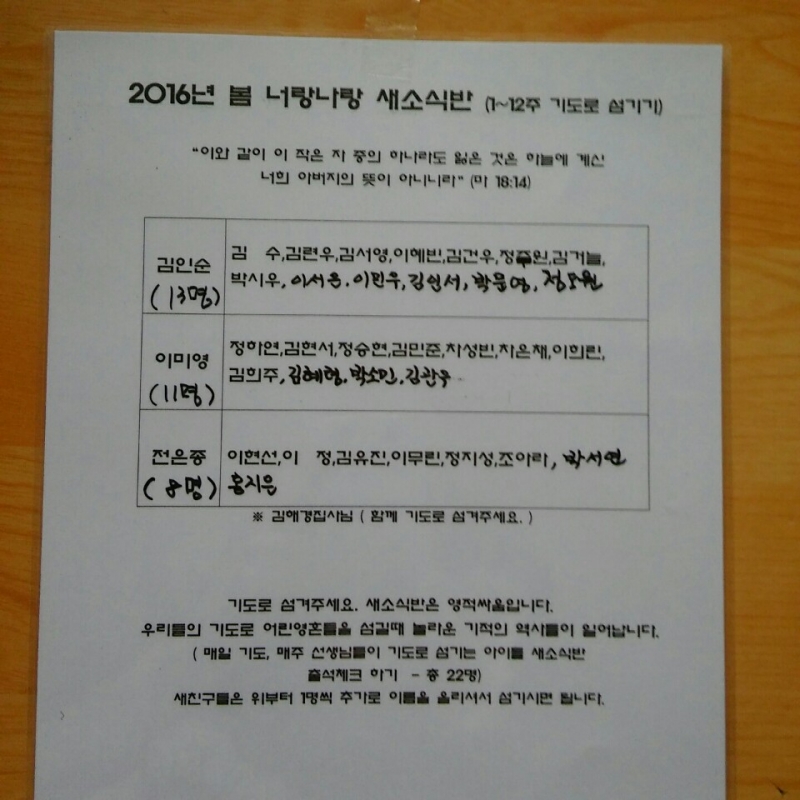 2016년 봄 너랑나랑 새소식반 (1~12주 기도로 섬기기)
"이와 같이 이 작은 자 중의 하나라도 잃은 것은 하늘에 계신
너희 아버지의 뜻이 아니니라" (마 18:14)
김인순
(13명)
김 수,김련우,김서영,이혜빈,김건우,정주원,김거늘,
박시우,이서은.이민우,김연서,박문영,정도원
이미영
(11명)
정하연,김현서,정승현,김민준,차성빈,차은채,이희린,
김희주,김혜형.박소민.김관우
전은종
(8명)
이현선,이 정,김유진,이무린,정지성,조아라,박서연
홍지은
※ 김해경집사님 ( 함께 기도로 섬겨주세요. )
기도로 섬겨주세요. 새소식반은 영적싸움입니다.
우리들의 기도로 어린영혼들을 섬길때 놀라운 기적의 역사들이 일어납니다.
( 매일 기도, 매주 선생님들이 기도로 섬기는 아이들 새소식반
출석체크 하기 - 총 22명)
새친구들은 위부터 1명씩 추가로 이름을 올리셔서 섬기시면 됩니다.